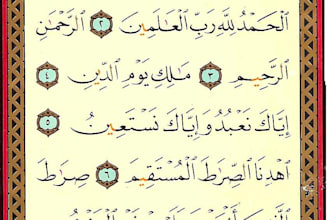 ٱلْحَمْدُ لِلَّهِ رَبِّ ٱلْعَٰلَمِينَ ٢ ٱلرَّحْمَٰنِ
ٱلرَّحِيمِ ٣ مَٰلِكِ يَوْمِ ٱلدِّينِ ٤
إِيَّاكَ نَعْبُدُ وَإِيَّاكَ نَسْتَعِينُ ٥
ٱهْدِنَا ٱلصِّرَٰطَ ٱلْمُسْتَقِيمَ ٦ صِرَٰطَ